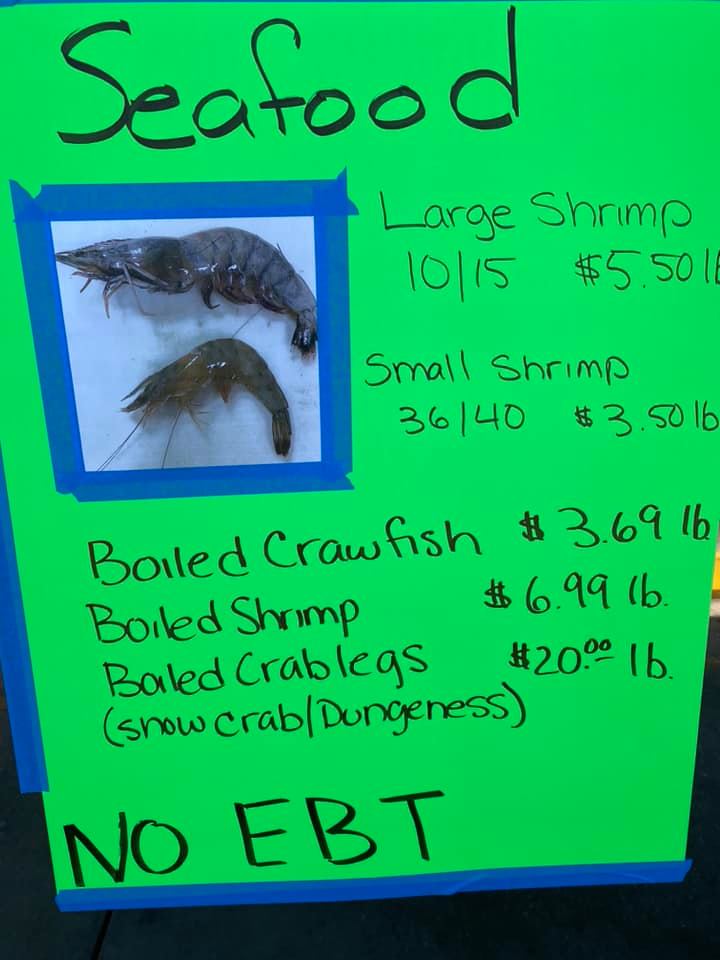 Seafood
Large Shrimp
10/15 $5.50 lb
Small Shrimp
36/40 $3.50 lb
Boiled Crawfish $3.69 lb
Boiled Shrimp $6.99 lb.
Boiled Crab legs $20.00 lb.
(snow crab/Dungeness)
NO EBT